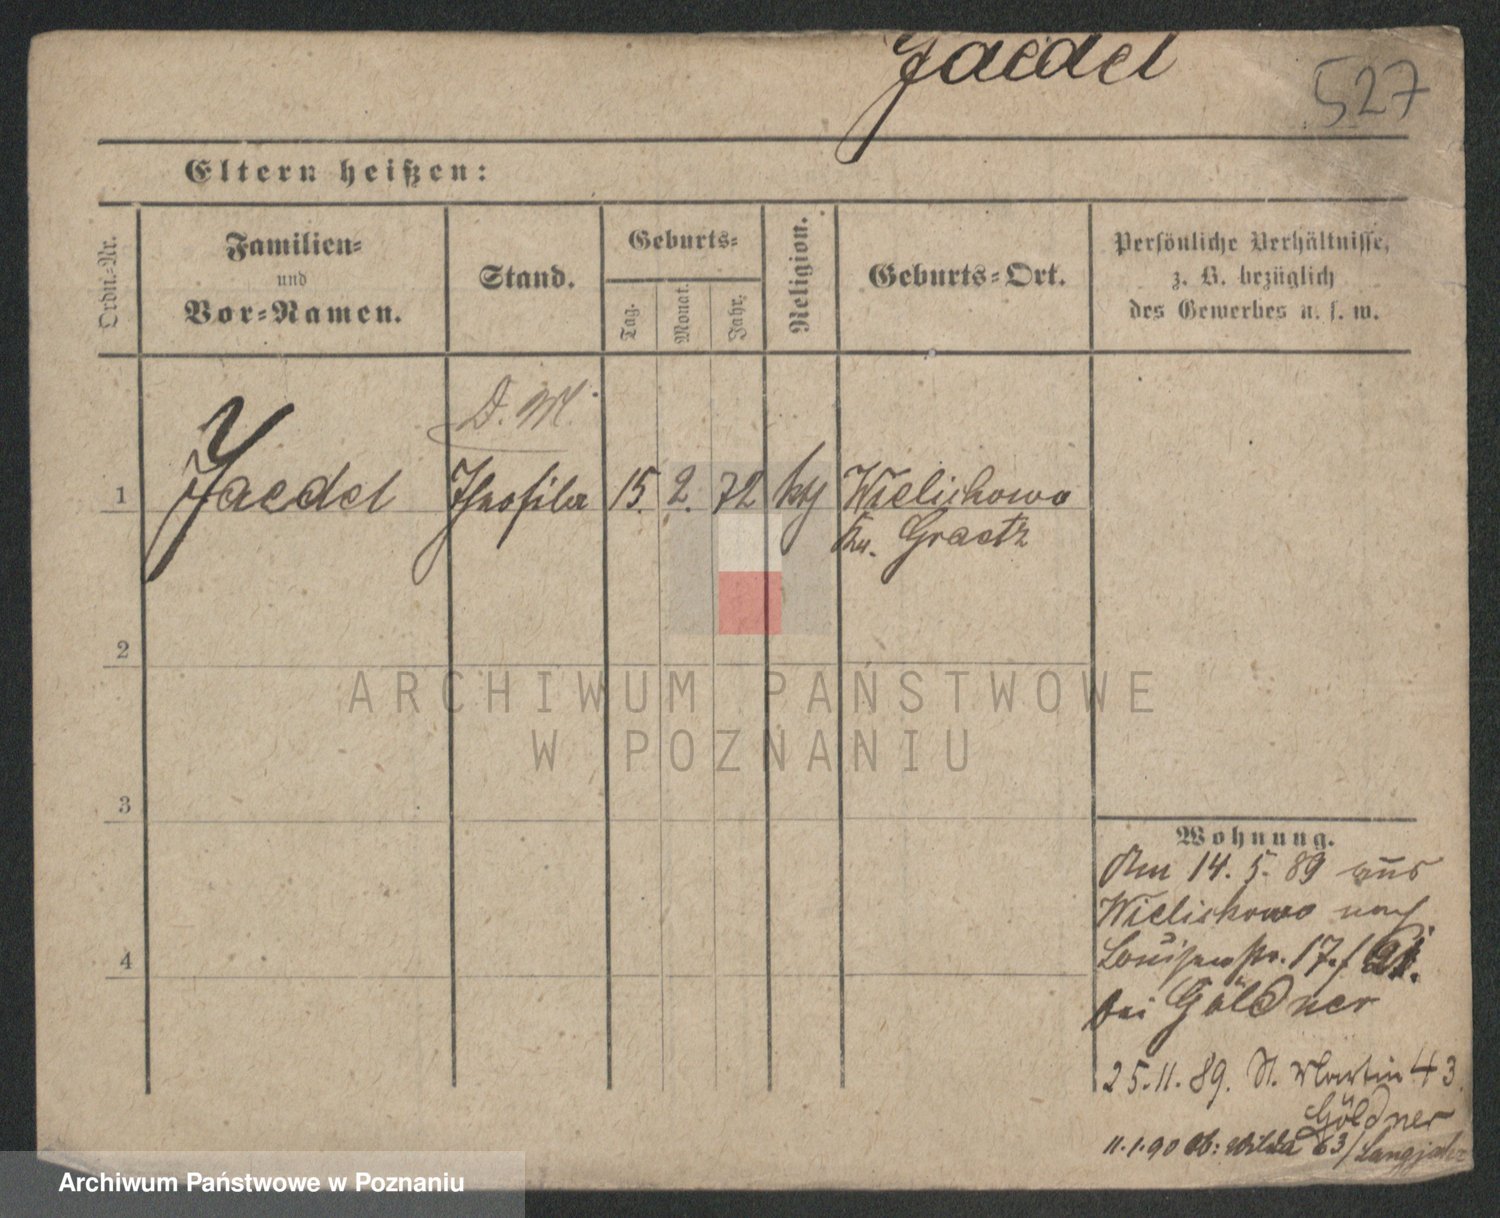 Jaedel
527
Eltern heißen:
Ordn.-Nr.
Familien-
und
Vor-Namen.
Stand.
Geburts-
Tag.
Monat.
Jahr.
Religion.
Geburts-Ort.
Persönliche Verhältnisse,
z. B. bezüglich
des Gewerbes u. s. w.
D. M.
1 Jaedel Theofila 15. 2. 72 kth Wielichowo
Kr. Graetz
2
3
4
Wohnung.
Am 14. 5. 89 aus
Wielichowo nach
Louisenstr. 17./
bei Göldner
25.11.89. St. Martin 43.
Göldner
11.1.90 Ob: Wilda 63/
ARCHIWUM PAŃSTWOWE
W POZNANIU
Archiwum Państwowe w Poznaniu